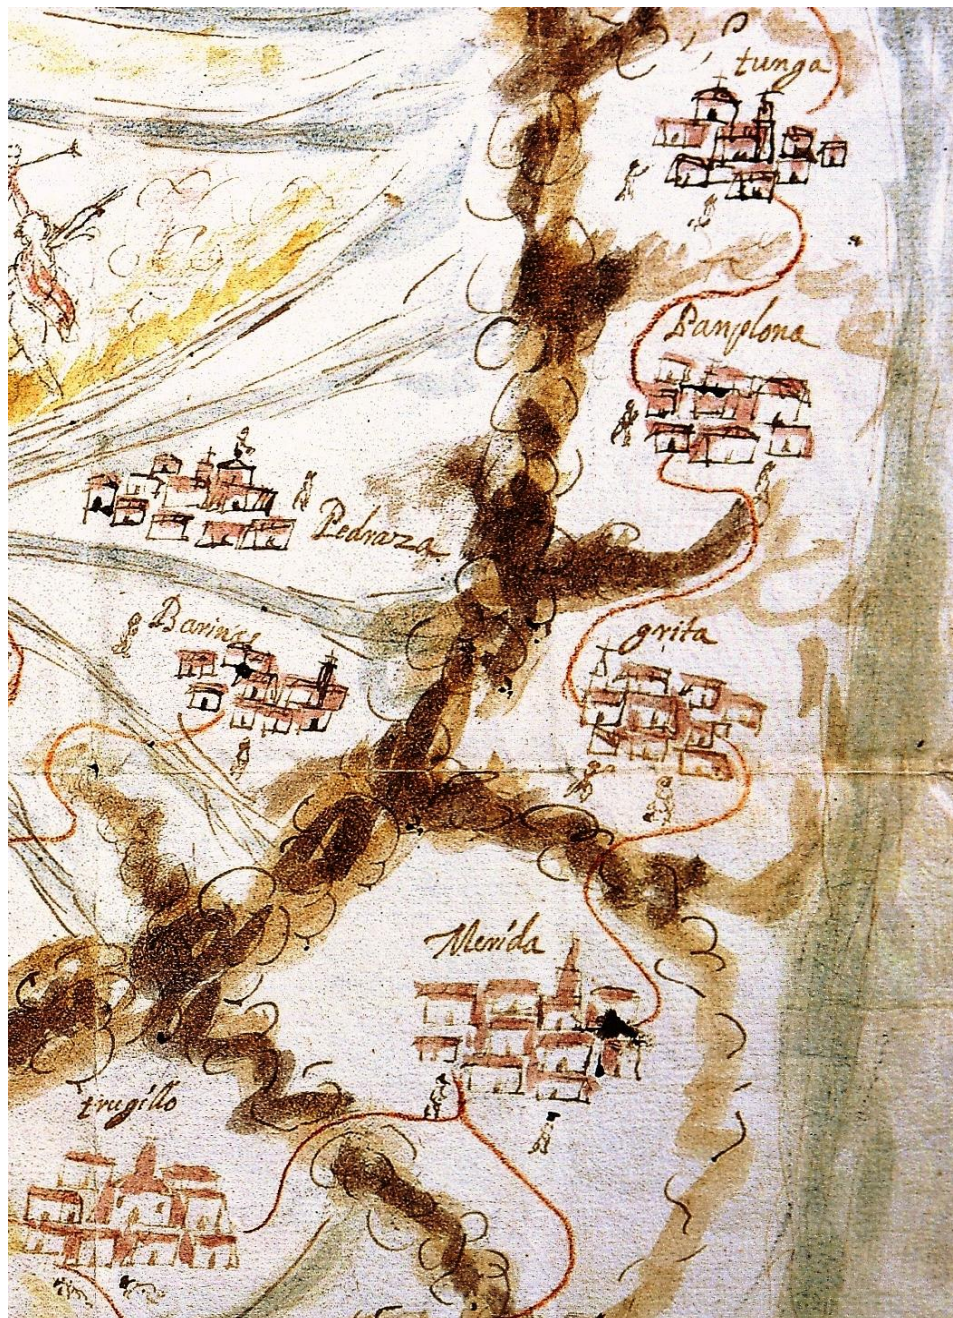 tunga
Pamplona
Pedraza
Barinas
grita
Merida
trugillo